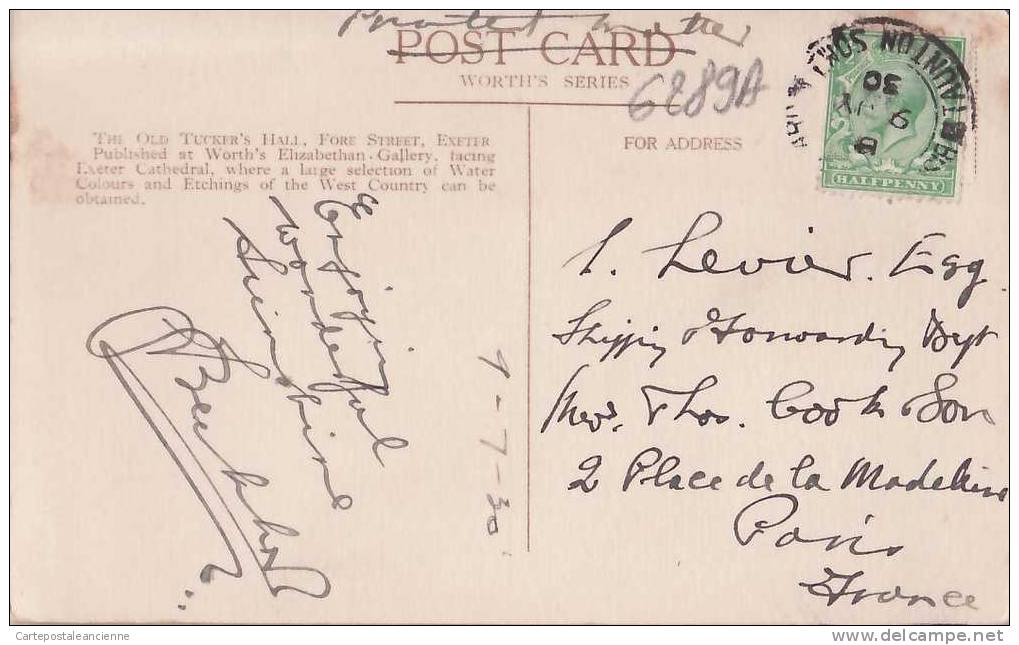 Printed Matter
POST CARD
WORTH'S SERIES
6289A
THE OLD TUCKER'S HALL, FORE STREET, EXETER
Published at Worth's Elizabethan Gallery, facing
Exeter Cathedral, where a large selection of Water
Colours and Etchings of the West Country can be
obtained.
FOR ADDRESS
TAUNTON SOM
9 JY
30
HALFPENNY
Enjoying
wonderful
sunshine
9-7-30
L. Levier. Esq.
Shipping & Forwarding Dept
Messrs. Thos. Cook & Son
2 Place de la Madeleine
Paris
France
Cartepostaleancienne
www.delcampe.net